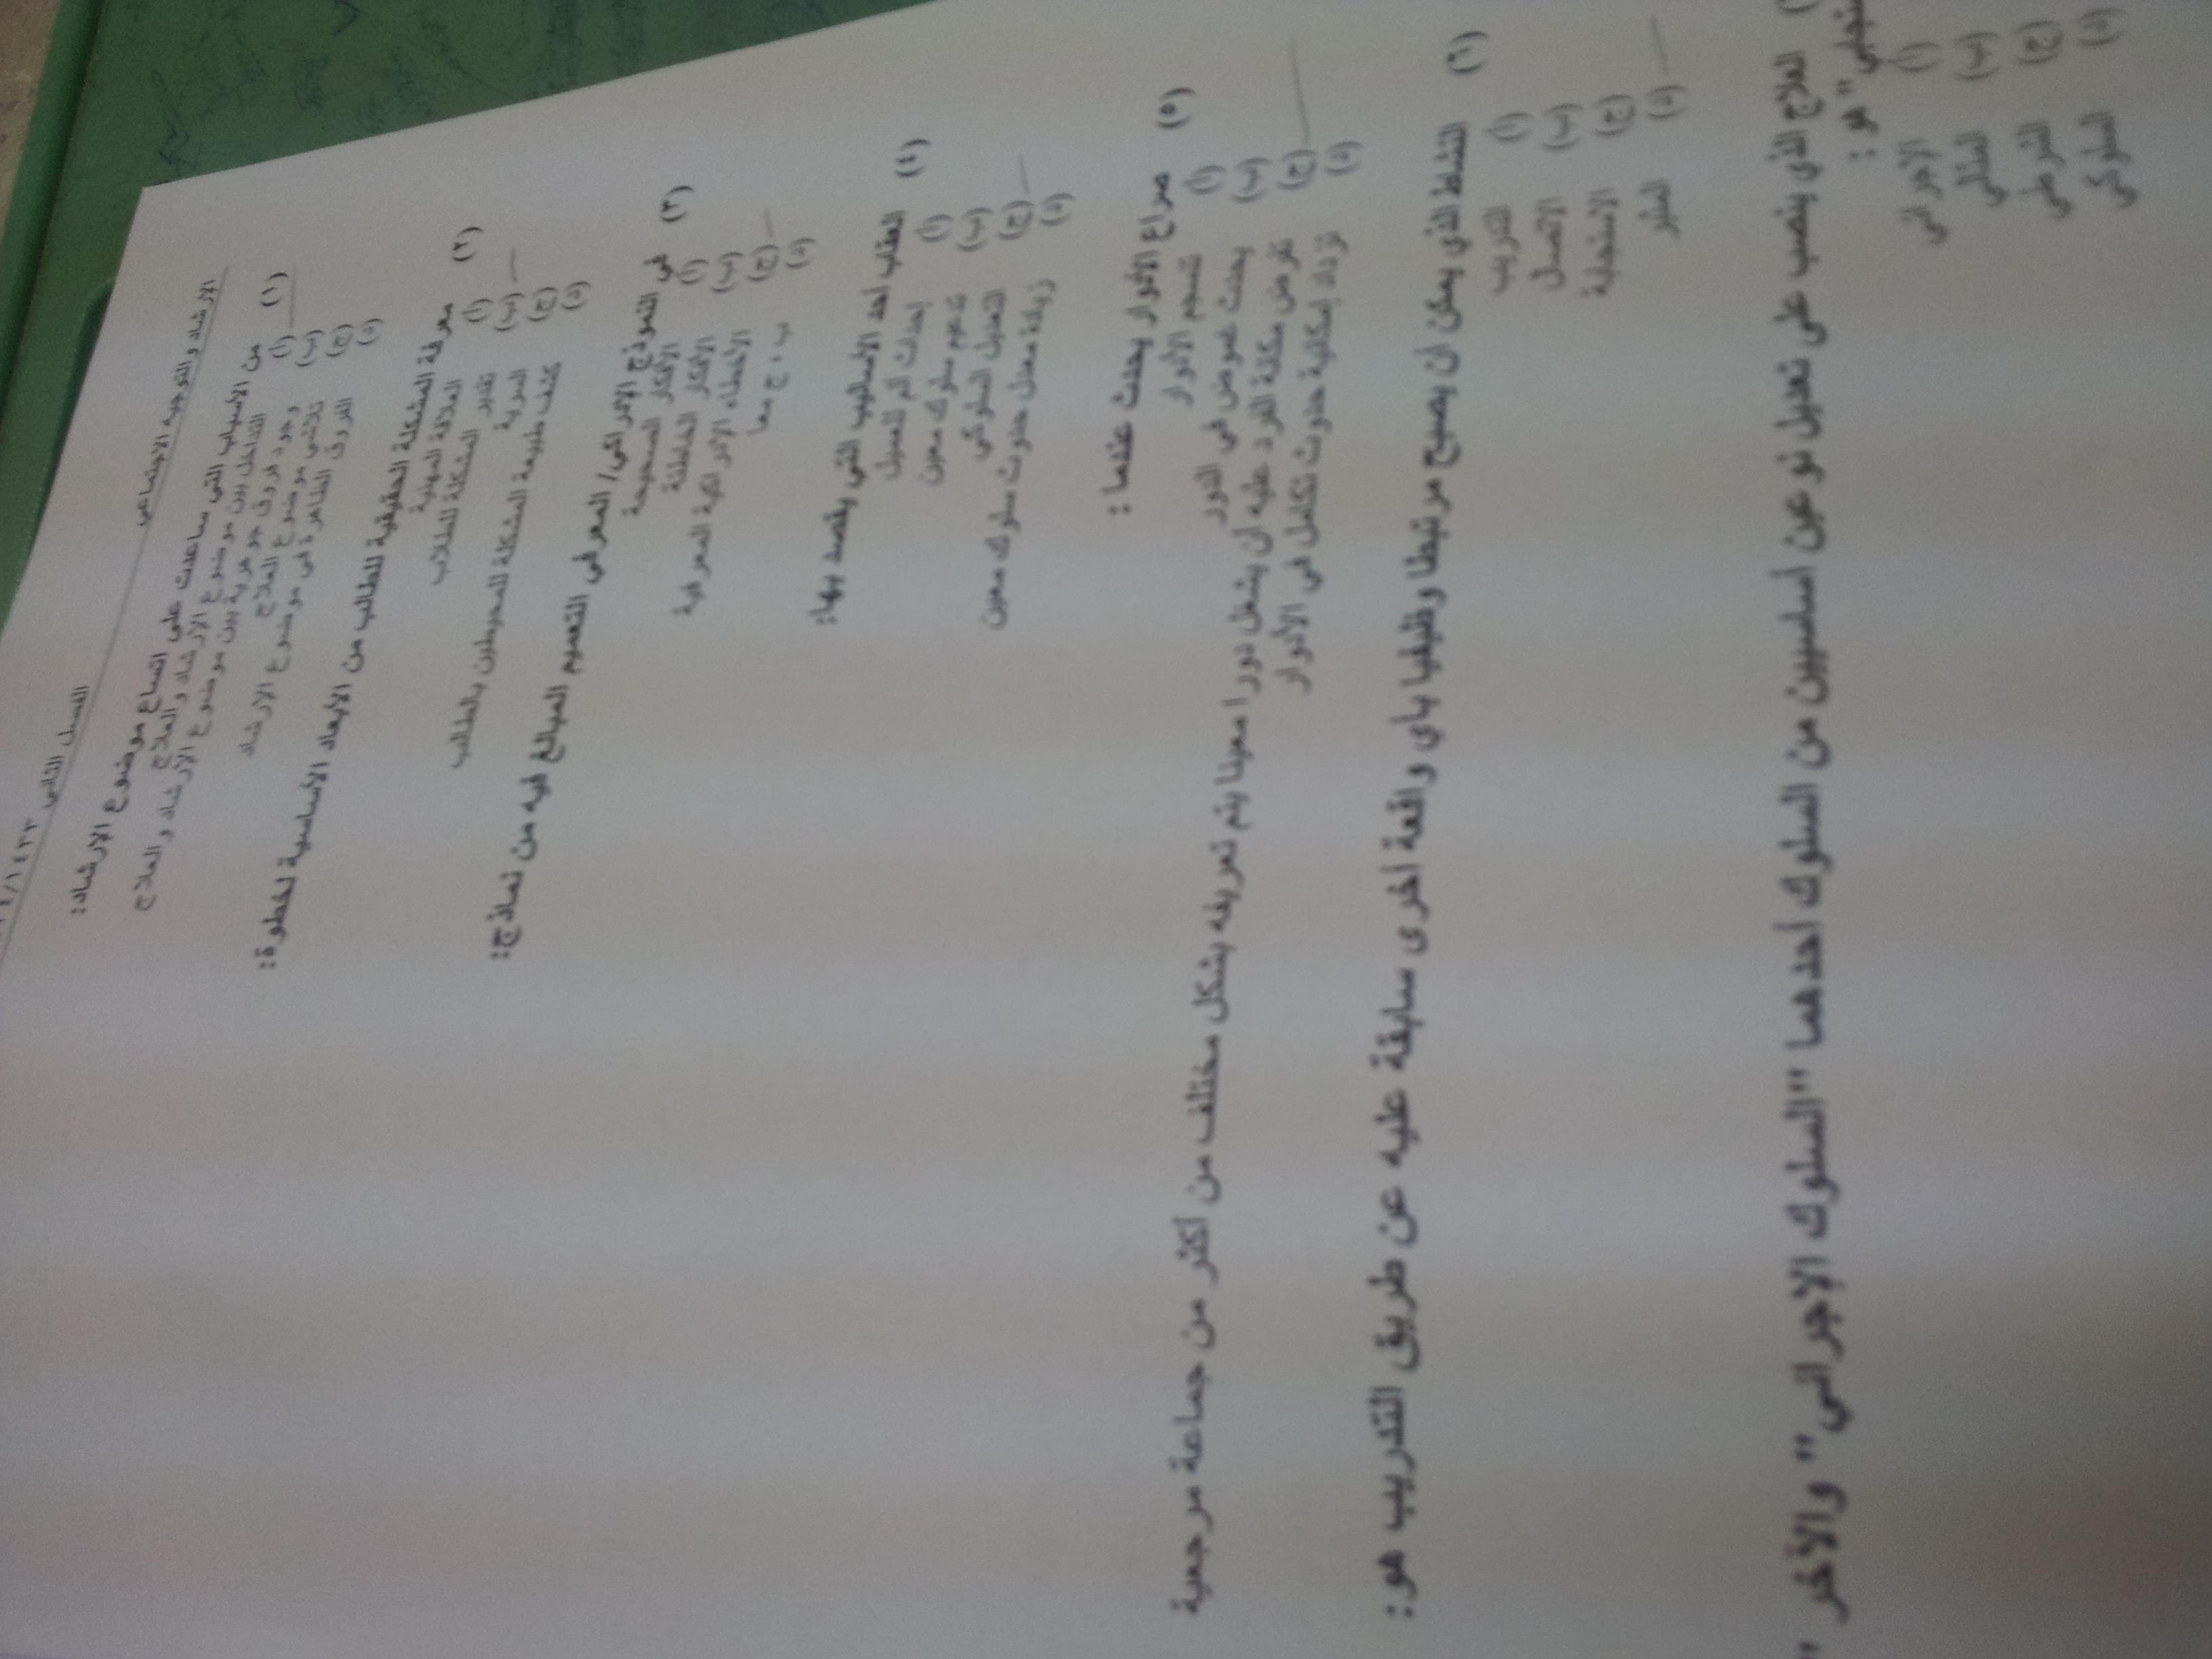 الارشاد والتوجيه الاجتماعي
الفصل الثاني ١٤٣٣/
(١) من الأسباب التي ساعدت على اتساع موضوع الارشاد:
(أ) التداخل بين موضوع الارشاد والعلاج
(ب) وجود فروق جوهرية بين موضوع الارشاد والعلاج
(ج) تلاشي موضوع العلاج
(د) الفروق الظاهرة في موضوع الارشاد
(٢) معرفة المشكلة الحقيقية للطالب من الابعاد الأساسية لخطوة:
(أ) العلاقة المهنية
(ب) تقدير المشكلة للطلاب
(ج) السرية
(د) كشف طبيعة المشكلة للمحيطين بالطالب
(٣) في النموذج الإدراكي/ المعرفي التعميم المبالغ فيه من نماذج:
(أ) الأفكار الصحيحة
(ب) الأفكار الخاطئة
(ج) الأخطاء الإدراكية المعرفية
(د) ب ، ج معا
(٤) العقاب أحد الأساليب التي يقصد بها:
(أ) إحداث ألم للعميل
(ب) تدعيم سلوك معين
(ج) التعديل السلوكي
(د) زيادة معدل حدوث سلوك معين
(٥) صراع الأدوار يحدث عندما :
(أ) تنسجم الأدوار
(ب) يحدث غموض في الدور
(ج) تفرض مكانة الفرد عليه أن يشغل دورا معينا يتم تعريفه بشكل مختلف من أكثر من جماعة مرجعية
(د) تزداد إمكانية حدوث تكامل في الأدوار
(٦) النشاط الذي يمكن ان يصبح مرتبطا وظيفيا باي واقعة اخرى سابقة عليه عن طريق التدريب هو:
(أ) التدريب
(ب) الاتصال
(ج) الاستجابة
(د) المثير
العلاج الذي ينصب على تعديل نوعين أساسيين من السلوك أحدهما "السلوك الإجرائي" والآخر "
هو :
(أ) الإجرائي
(ب)
(ج)
(د) السلوكي